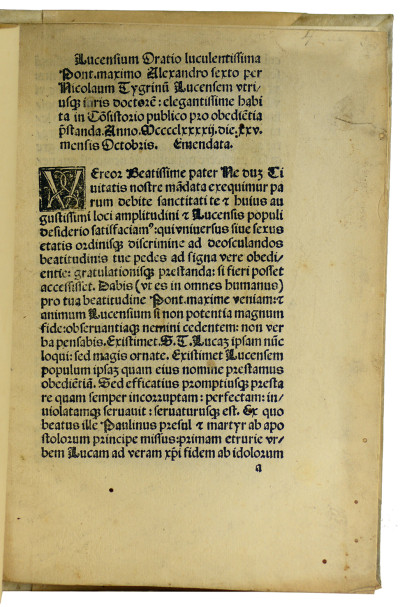 Lucensium Oratio luculentissima
Pont. maximo Alexandro sexto per
Nicolaum Tygrinũ Lucensem vtri/
usq̃ iuris doctorẽ: elegantissime habi
ta in Cõsistorio publico pro obediẽtia
p̃standa. Anno. Mccccлxxxxij. die. xxv.
mensis Octobris. Emendata.
VEreor Beatissime pater Ne duz Ci
uitatis nostre mãdata exequimur pa
rum debite sanctitati te ⁊ huius au
gustissimi loci amplitudini ⁊ Lucensis populi
desiderio satisfaciamꝰ: qui vniuersus siue sexus
etatis ordinisq̃ discrimine ad deosculandos
beatitudinis tue pedes ad signa vere obedi/
entie: gratulationisq̃ prestanda: si fieri posset
accessisset. Dabis (vt es in omnes humanus)
pro tua beatitudine Pont. maxime veniam: ⁊
animum Lucensium si non potentia magnum
fide: obseruantiaq̃ nemini cedentem: non ver
ba pensabis. Existimet. S. T. Lucaz ipsam nũc
loqui: sed magis ornate. Existimet Lucensem
populum ipsaz quam eius nomine prestamus
obediẽtiã. Sed efficatius promptiusq̃ presta
re quam semper incorruptam: perfectam: in/
uiolatamq̃ seruauit: seruaturusq̃ est. Ex quo
beatus ille Paulinus presul ⁊ martyr ab apo
stolorum principe missus: primam etrurie vr/
bem Lucam ad veram xp̃i fidem ab idolorum
a